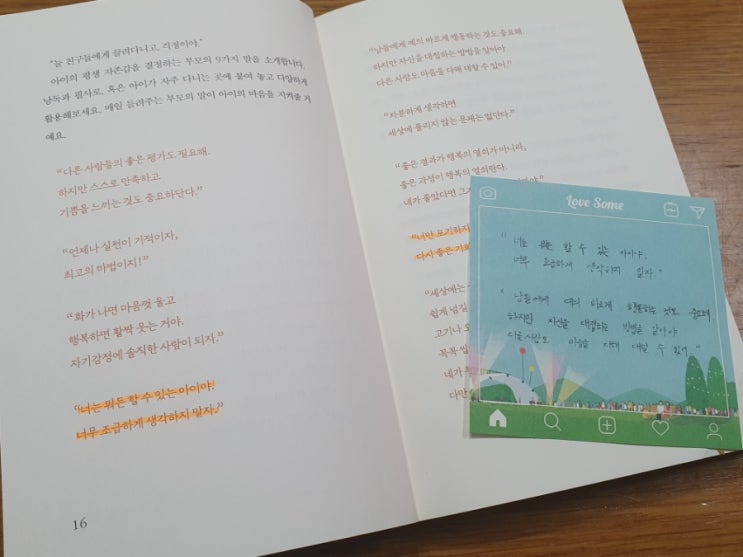 "늘 친구들에게 끌려다니고, 걱정이야."
아이의 평생 자존감을 결정하는 부모의 9가지 말을 소개합니다.
낭독과 필사로, 혹은 아이가 자주 다니는 곳에 붙여 놓고 다양하게
활용해보세요. 매일 들려주는 부모의 말이 아이의 마음을 지켜줄 거
예요.
"다른 사람들의 좋은 평가도 필요해.
하지만 스스로 만족하고
기쁨을 느끼는 것도 중요하단다."
"언제나 실천이 기적이자,
최고의 마법이지!"
"화가 나면 마음껏 울고
행복하면 활짝 웃는 거야.
자기감정에 솔직한 사람이 되자."
"너는 뭐든 할 수 있는 아이야!
너무 조급하게 생각하지 말자."
16
"남들에게 예의 바르게 행동하는 것도 중요해.
하지만 자신을 대접하는 방법을 알아야
다른 사람도 마음을 다해 대할 수 있어."
"차분하게 생각하면
세상에 풀리지 않는 문제는 없단다."
"좋은 결과가 행복의 열쇠가 아니라,
좋은 과정이 행복의 열쇠란다.
네가 좋았다면
"너만 포기하지
다시 좋은
"세상에는
쉽게 넘길
고기나
꼭꼭
네가
다만
Love Some
"너는 뭐든 할 수 있는 아이야.
너무 조급하게 생각하지 말자."
"남들에게 예의 바르게 행동하는 것도 중요해
하지만 자신을 대접하는 방법을 알아야
다른 사람도 마음을 다해 대할 수 있어"